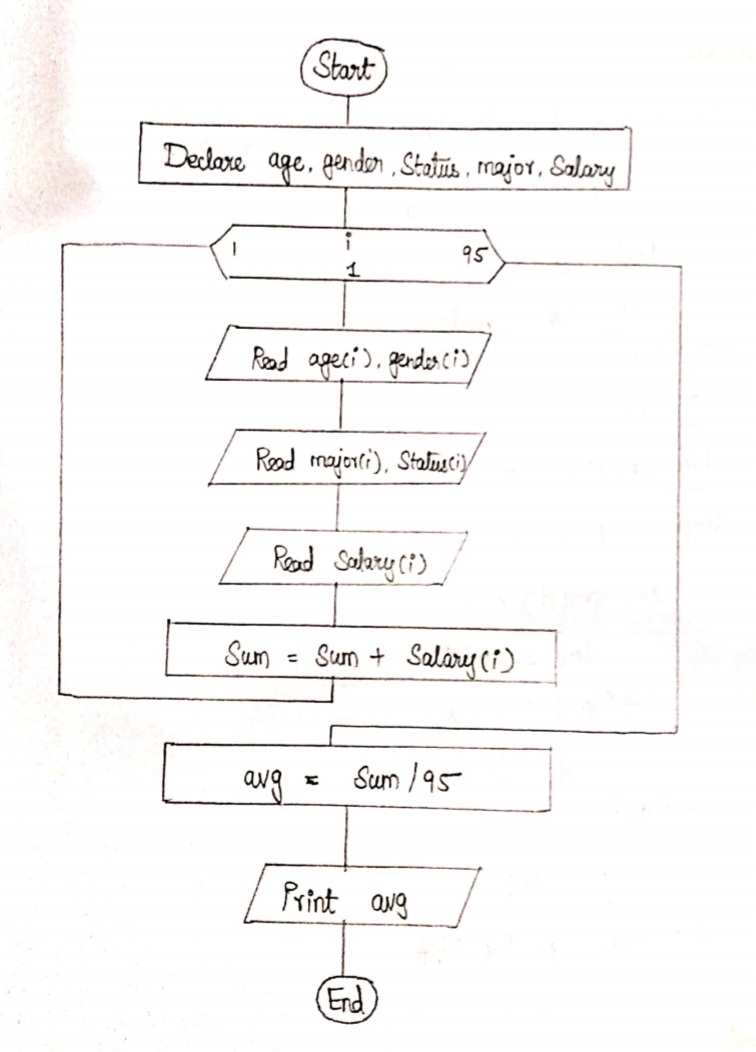 Start
Declare age, gender, Status, major, Salary
1 i 95
1
Read age(i), gender(i)
Read major(i), Status(i)
Read Salary(i)
Sum = Sum + Salary(i)
avg = Sum / 95
Print avg
End